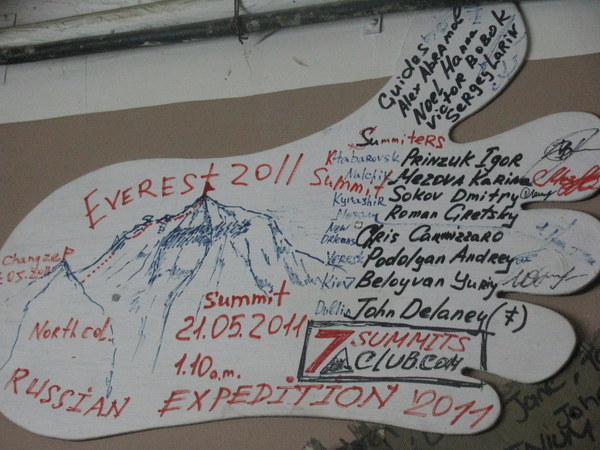 Guides
Alex Abramov
Noel Hanna
Victor Bobok
Sergey Larin
Summiters
Khabarovsk Prinzuk Igor
Nalchik Mezova Karina
Summit
Sokov Dmitry
Roman Giretsby
New Orleans Chris Cannizzaro
Podolyan Andrey
Kiev Beloyvan Yuriy
John Delaney (‡)
7 SUMMITS
CLUB.COM
EVEREST 2011
Changzer
05.2011
North col.
Summit
21.05.2011
1.10 a.m.
RUSSIAN EXPEDITION 2011
Jane,